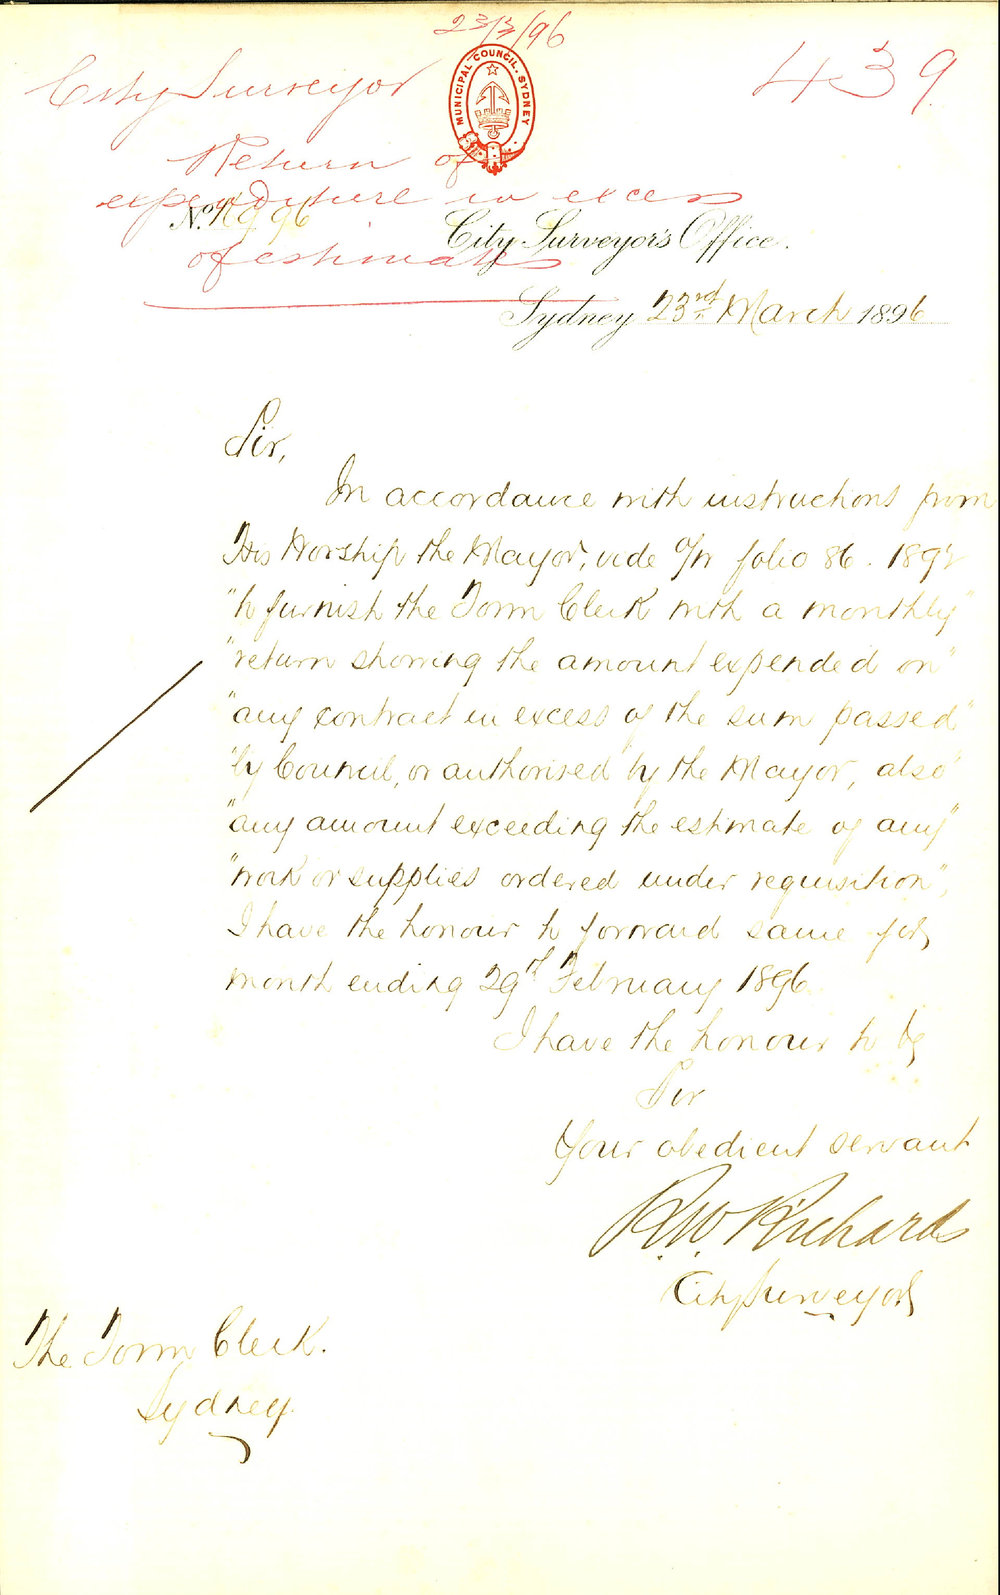 23/3/96
439
City Surveyor
MUNICIPAL COUNCIL. SYDNEY
Return of
expenditure in excess
of estimates
No. 96
City Surveyor's Office.
Sydney 23rd March 1896
Sir,
In accordance with instructions from
His Worship the Mayor, vide folio 86. 1892
"to furnish the Town Clerk with a monthly"
"return showing the amount expended on"
"any contract in excess of the sum passed"
"by Council, or authorised by the Mayor, also"
"any amount exceeding the estimate of any"
"work or supplies ordered under requisition",
I have the honour to forward same for
month ending 29th February 1896.
I have the honour to be
Sir
Your obedient servant
R.W. Richards
City Surveyor
The Town Clerk.
Sydney